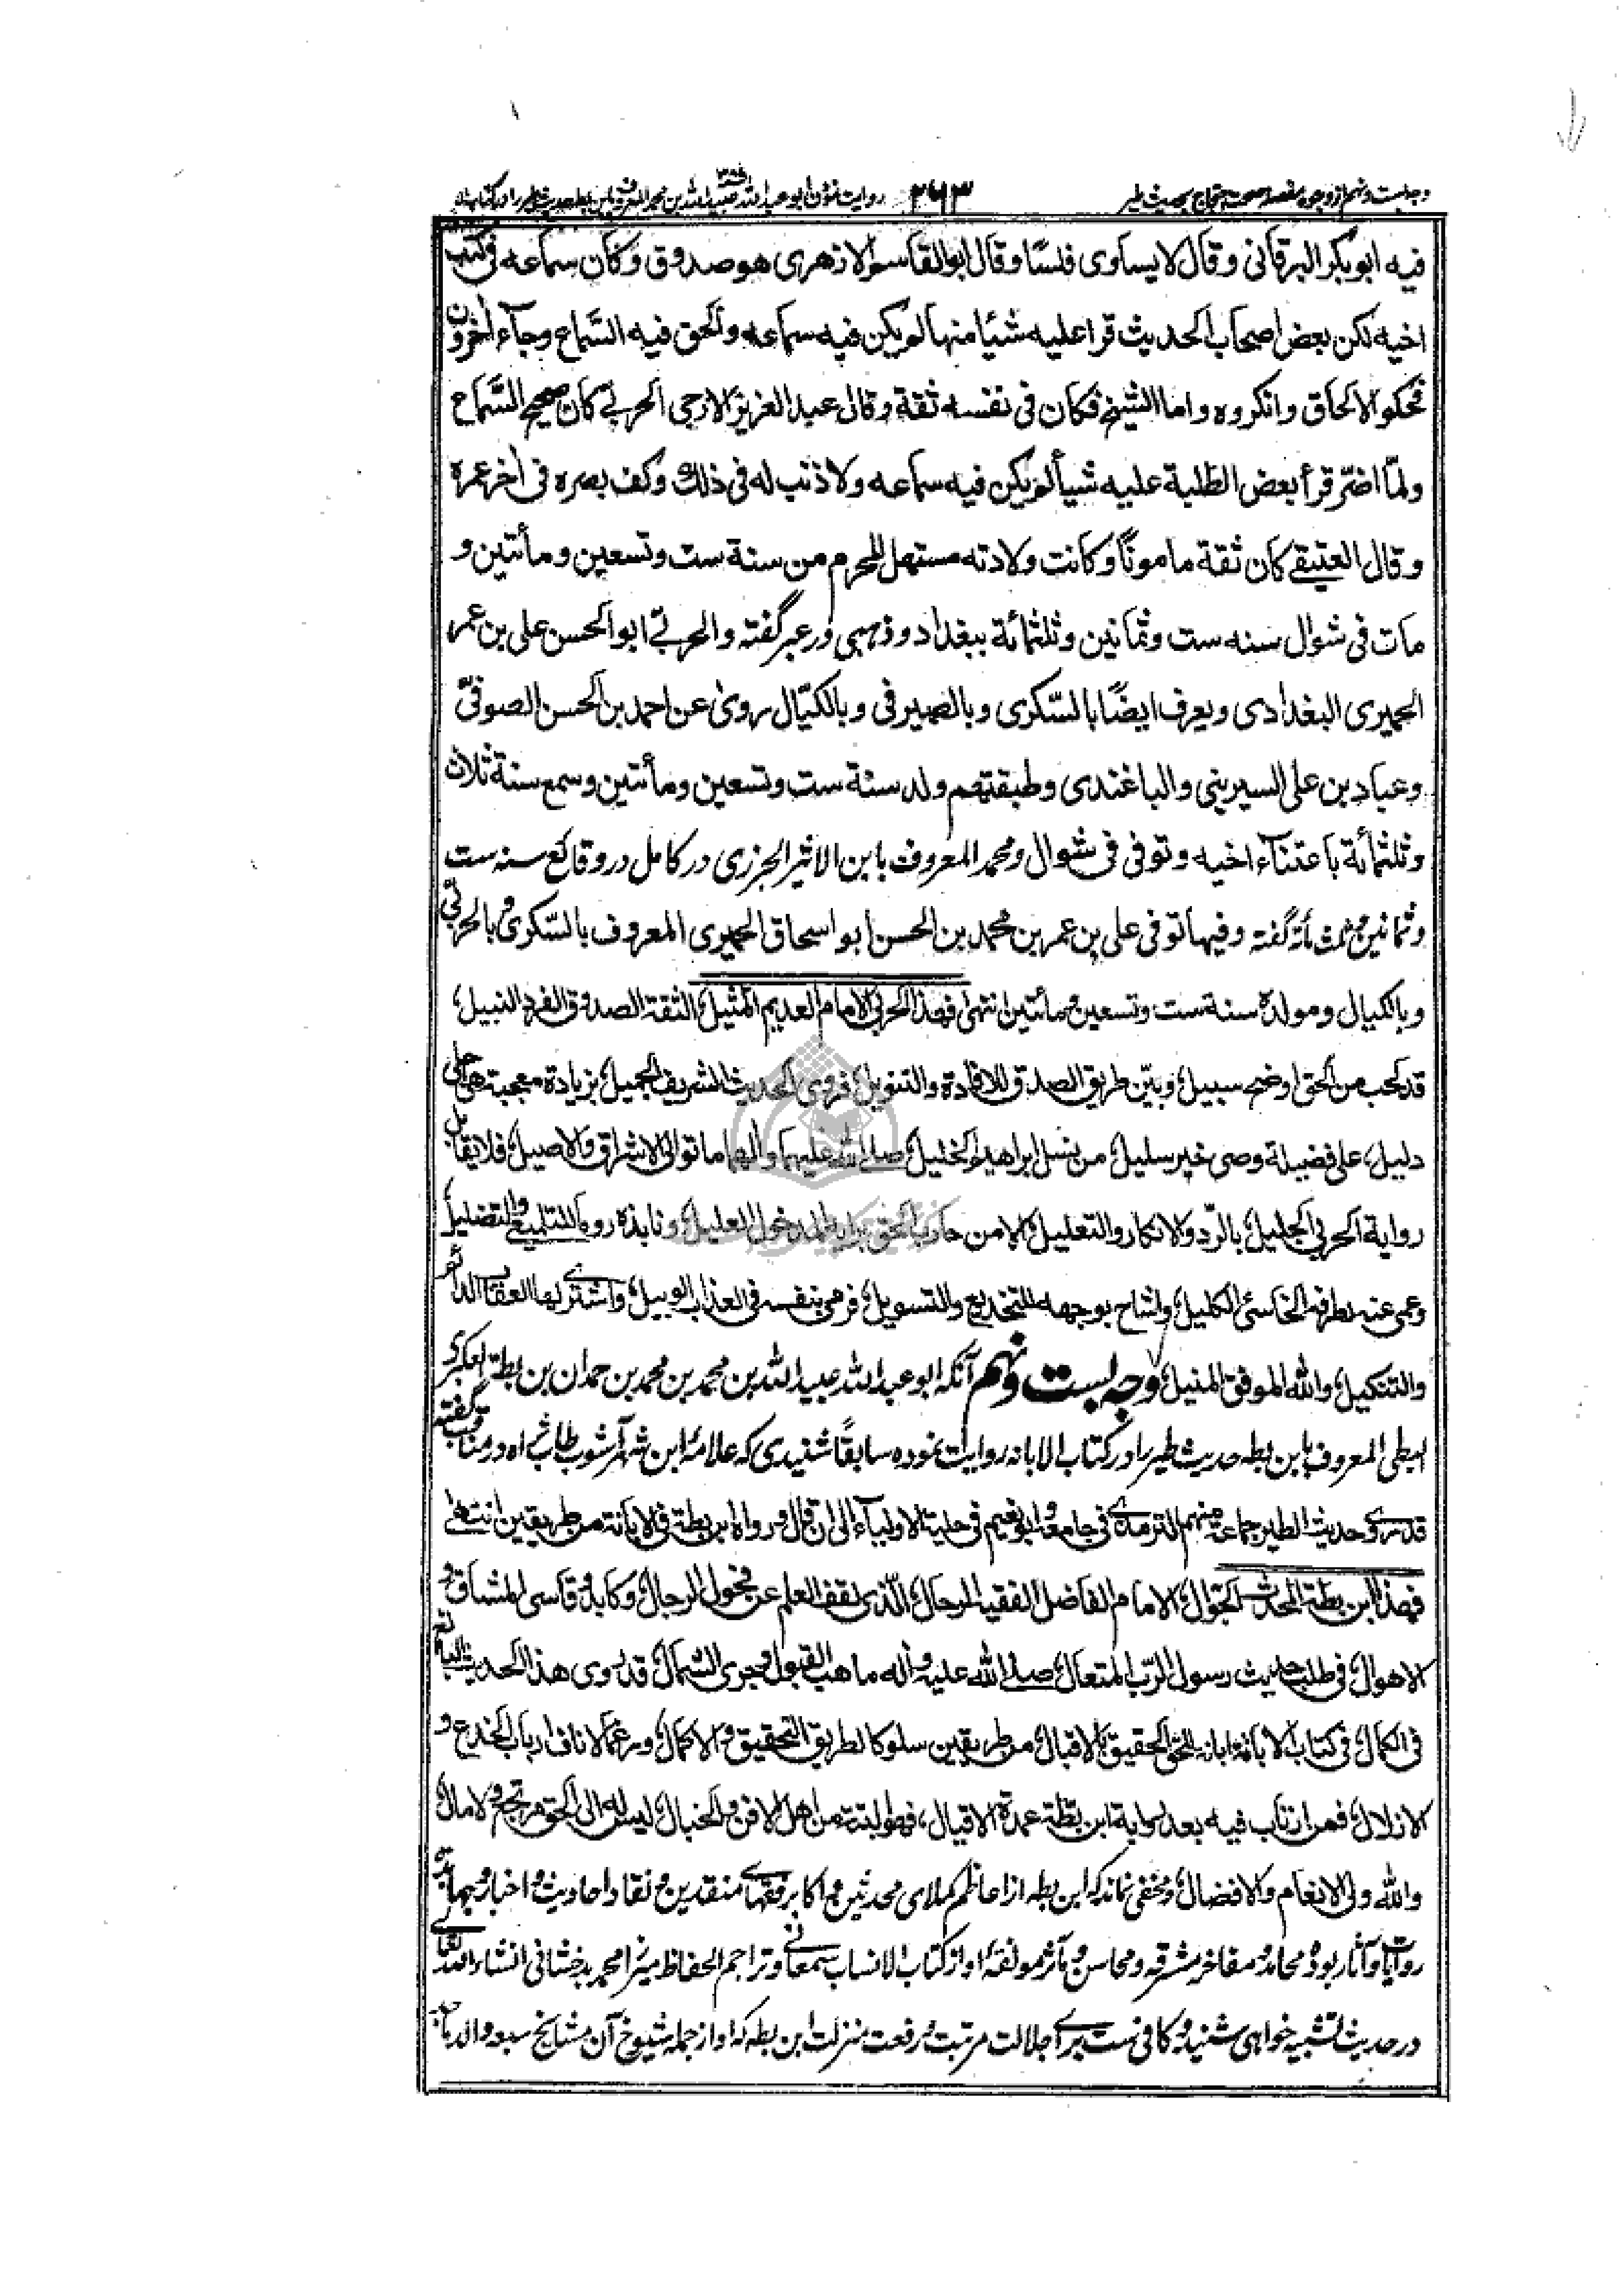 وجه بست و نهم از وجوه مفصله صحت احتجاج بحدیث طیر ۲۶۳ روایت نمودن ابو عبدالله عبیدالله بن محمد المعروف بابن بطه حدیث طیر را در کتاب ابانه
فیه ابوبکر البرقانی وقال لا یساوی فلسًا وقال ابوالقاسم الازهری هو صدوق وکان سماعه فی کتب
اخیه لکن بعض اصحاب الحدیث قرا علیه شیئا منها لم یکن فیه سماعه والحق فیه السّماع وجآء آخرون
فحکوا الالحاق وانکروه واما الشیخ فکان فی نفسه ثقة وقال عبد العزیز الازجی الحربی کان صحیح السّماع
ولمّا اضرّ قرأ بعض الطلبة علیه شیأ لم یکن فیه سماعه ولا ذنب له فی ذلک وکف بصره فی آخر عمره
وقال العتیقی کان ثقة مامونًا وکانت ولادته مستهل المحرم من سنة ست وتسعین ومأتین و
مات فی شوال سنه ست وثمانین وثلثمائة ببغداد و ذهبی در عبر گفته والحربی ابوالحسن علی بن عمر
الحمیری البغدادی ویعرف ایضًا بالسّکری وبالصیرفی وبالکیّال روی عن احمد بن الحسن الصوفیّ
وعباد بن علی السیرینی والباغندی وطبقتهم ولد سنة ست وتسعین ومأتین وسمع سنة ثلاث
وثلثمائة باعتنآء اخیه وتوفی فی شوال و محمد المعروف بابن الاثیر الجزری در کامل در وقائع سنه ست
وثمانین وثلثمأئة گفته وفیها توفی علی بن عمر بن محمد بن الحسن ابو اسحاق الحمیری المعروف بالسّکری وبالحربیّ
وبالکیال ومولده سنة ست وتسعین ومأتین انتهی فهذا الحربی الامام العدیم المثیل، الثقة الصدوق الفرد النبیل،
قد لحب من الحق اوضح سبیل، وبیّن طریق الصدق للافادة والتنویل، فروی الحدیث الشریف الجمیل، بزیادة معجبة هی اجلی
دلیل، علی فضیلة وصی خیر سلیل، من نسل ابراهیم الخلیل، صلی الله علیهما وآلهما ما توالی الاشراق والاصیل، فلا یقابل
روایة الحربی الجلیل، بالرّد والانکار والتعلیل، الا من حارب الحق المدخول العلیل، ونابذه للتلمیع والتضلیل،
وعمی عنه بطرفه الخاسئ الکلیل، واشاح بوجهه للتخدیع والتسویل، فرمی بنفسه فی العذاب الوبیل، واشتری لها العقاب الدائم
والتنکیل، والله الموفق المنیل، وجه بست و نهم آنکه ابو عبدالله عبیدالله بن محمد بن محمد بن حمدان بن بطة العکبری
البطی المعروف بابن بطه حدیث طیر را در کتاب الابانه روایت نموده سابقًا شنیدی که علامه ابن شهر آشوب طاب ثراه در مناقب گفته
قد روی حدیث الطیر جماعة منهم الترمذی فی جامعه وابونعیم فی حلیة الاولیآء الی ان قال ورواه ابن بطة فی الابانة من طریقین انتهی
فهذا ابن بطة المحدث الجوّال، الامام الفاضل الفقیه الرحال، الّذی لقف العلم عن فحول الرجال، وکابد وقاسی المشاق و
الاهوال، فی طلب حدیث رسول الرّب المتعال، صلی الله علیه وآله ما هب القبول وجری الشمال، قد روی هذا الحدیث البالغ
فی الکمال، فی کتاب الابانة ابانة للحق الحقیق بالاقبال، من طریقین سلوکا لطریق التحقیق والاکمال، ورغما لاناف ارباب الخدع و
الازلال، فمن ارتاب فیه بعد روایة ابن بطة عمدة الاقیال، فهو البتة من اهل الافن والخبال، لیس له الی الحق مرتجع ولا مآل،
والله ولی الانعام والافضال، و مخفی نماند که ابن بطه از اعاظم کملای محدثین و اکابر فقهای منقدین و نقاد احادیث و اخبار و جهابذه
روایات و آثار بوده محامد و مفاخر مشرقه و محاسن و مآثر مونقهٔ او از کتاب الانساب سمعانی و تراجم الحفاظ میرزا محمد بدخشانی انشاء الله تعالی
در حدیث تشبیه خواهی شنید و کافی ست برای جلالت مرتبت و رفعت منزلت ابن بطه که او از جمله شیوخ آن مشایخ سبعه